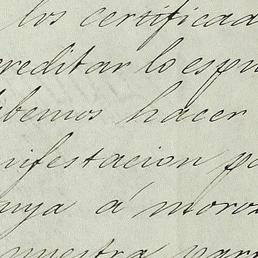 los certificad
creditar lo espu
ebemos hacer
nifestacion pa
uya á moroz
muestra para